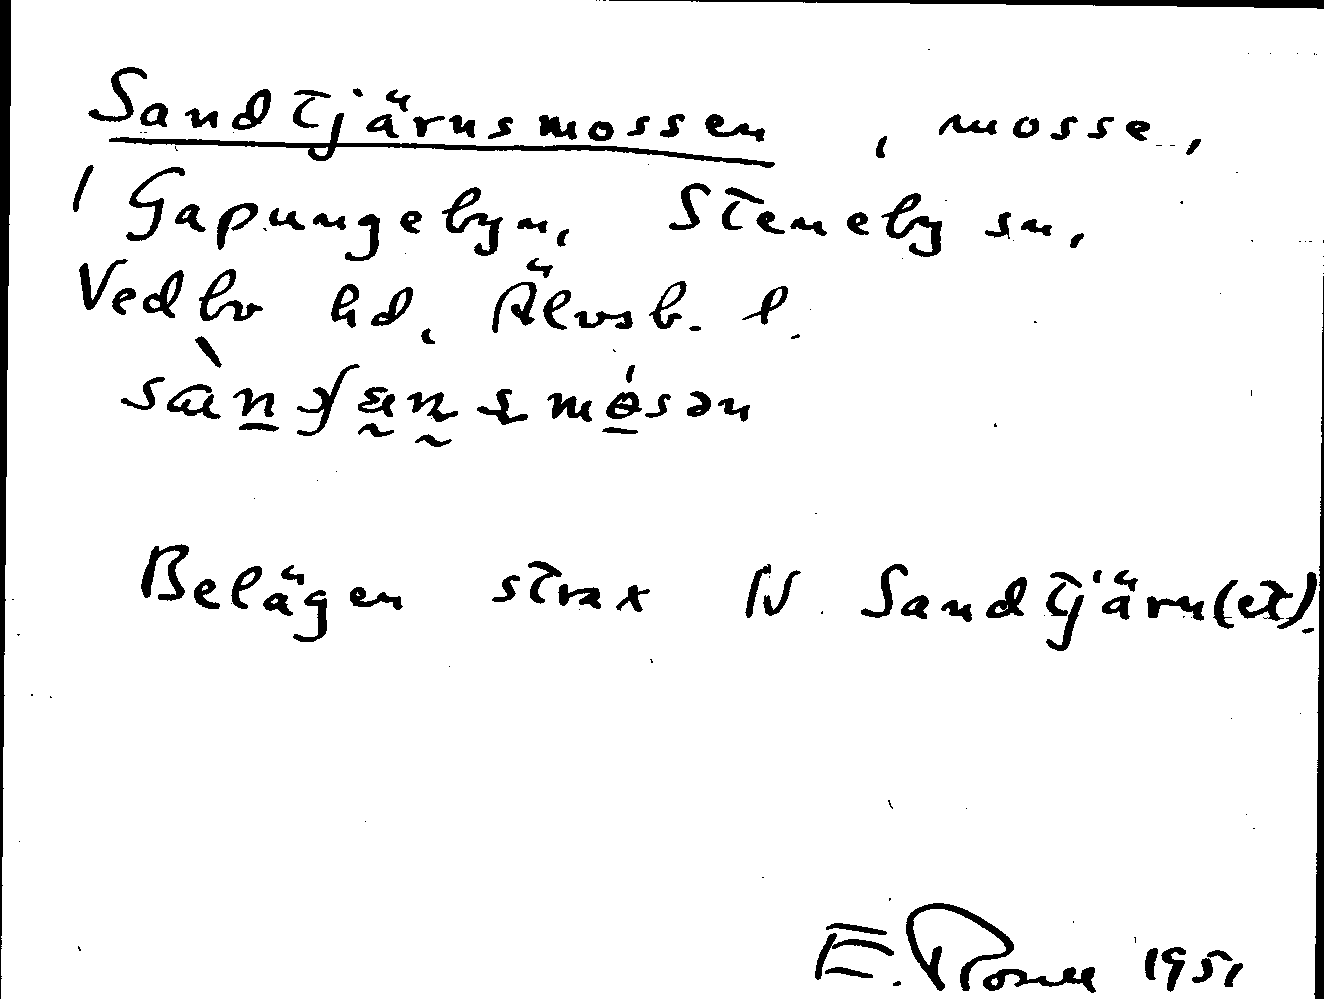 Sandtjärnsmossen, mosse,
i Gapungebyn, Steneby sn,
Vedbo hd, Älvsb. l.
Belägen strax N Sandtjärn(et).
E. Rosell 1951